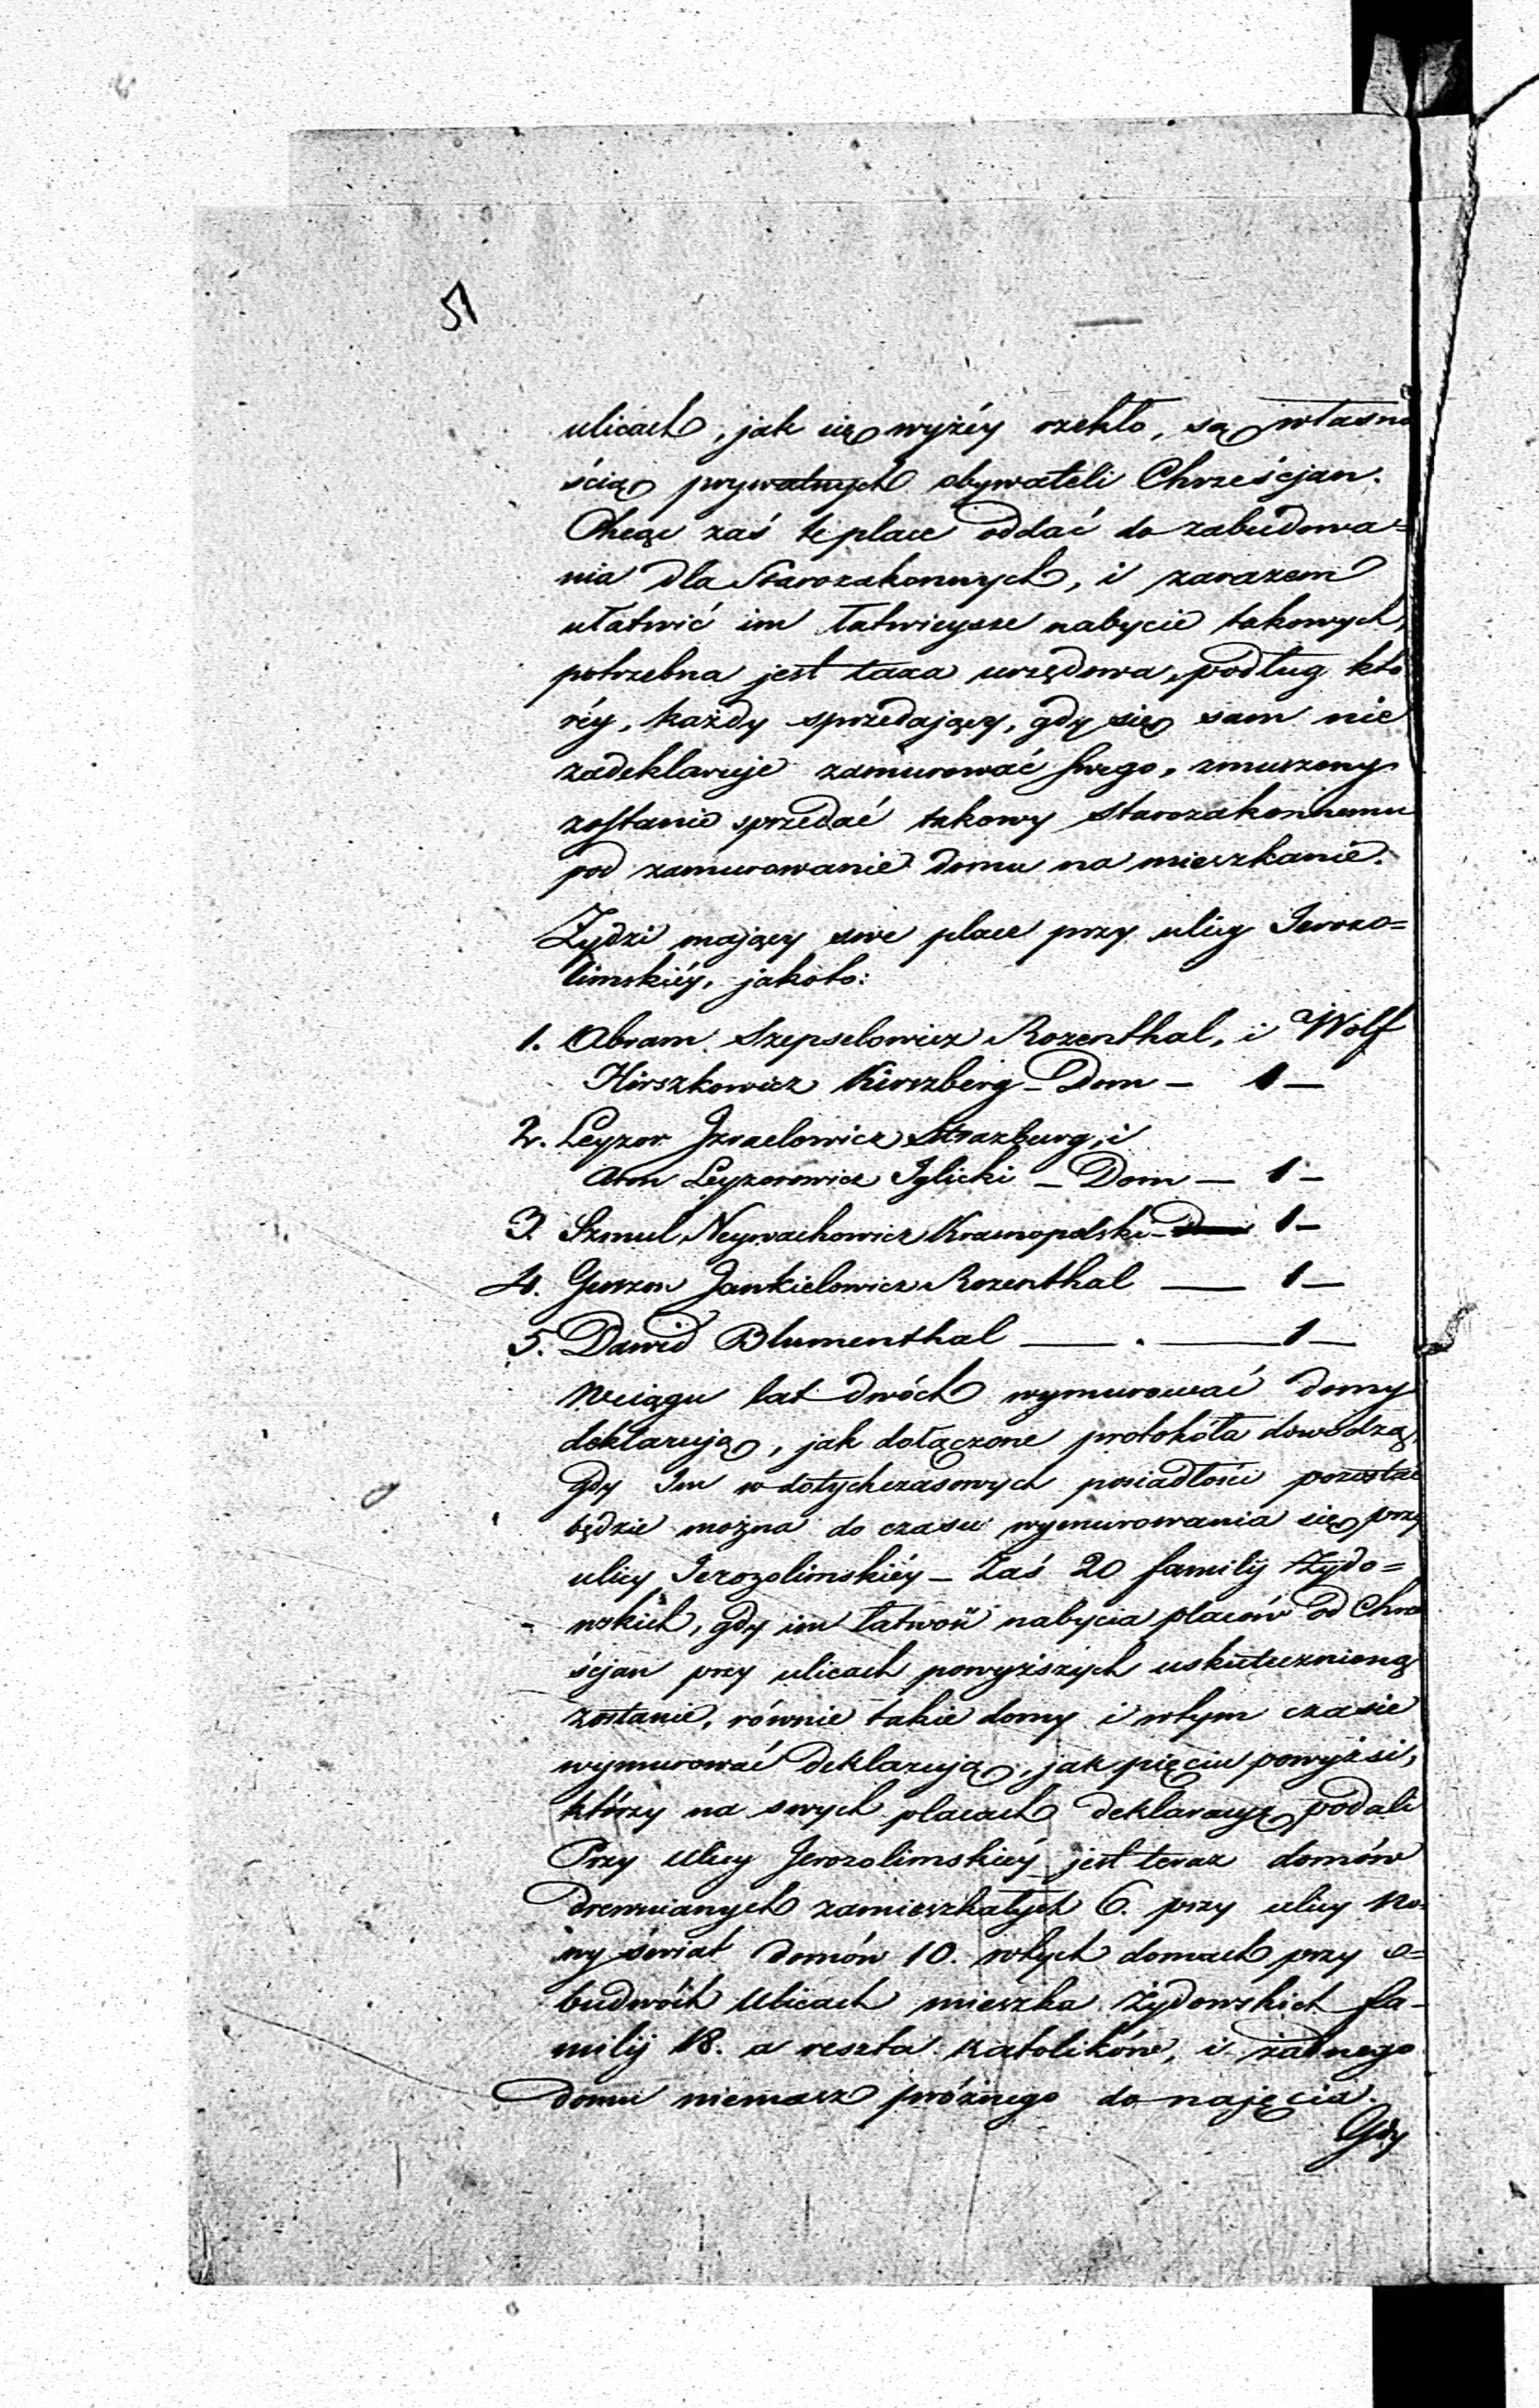 51
ulicach, jak się wyżéy rzekło, są własno
ścią prywatnych obywateli Chrześcjan.
Chcąc zaś te place oddać do zabudowa=
nia dla Starozakonnych, i zarazem
ułatwić im łatwieysze nabycie takowych,
potrzebna jest taxa urzędowa, podług któ
réy, każdy sprzedający, gdy się sam nie
zadeklaruje zamurować swego, zmuszony
zostanie sprzedać takowy starozakonnemu
pod zamurowanie domu na mieszkanie.
Żydzi mający swe place przy ulicy Jerozo=
limskiéy, jakoto:
1. Abram Szepselowicz Rozenthal, i Wolf
Hirszkowicz Kirszberg - Dom - 1 -
2. Leyzor Jzraelowicz Strazburg, i
Aron Leyzorowicz Iglicki - Dom - 1 -
3. Szmul Neywachowicz Krasnopolski - 1 -
4. Gerszon Jankielowicz Rozenthal — 1 -
5. Dawid Blumenthal — . — 1 -
Wciągu lat dwóch wymurować domy
deklarują, jak dołączone protokóła dowodzą,
gdy Im w dotychczasowych posiadłości pozostać
będzie można do czasu wymurowania się przy
ulicy Jerozolimskiéy - Zaś 20 familij Żydo=
wskich, gdy im łatwość nabycia placów od Chrze
ścjan przy ulicach powyższych uskutecznioną
zostanie, równie takie domy i wtym czasie
wymurować deklarują, jak pięciu powyżsi,
którzy na swych placach deklaracyą podali
Przy ulicy Jerozolimskiéy jest teraz domów
drewnianych zamieszkałych 6. przy ulicy No-
wy świat domów 10. wtych domach przy o=
budwóch Ulicach mieszka Żydowskich fa-
milij 18. a reszta Katolików, i żadnego
domu niemasz próżnego do najęcia.
Gdy